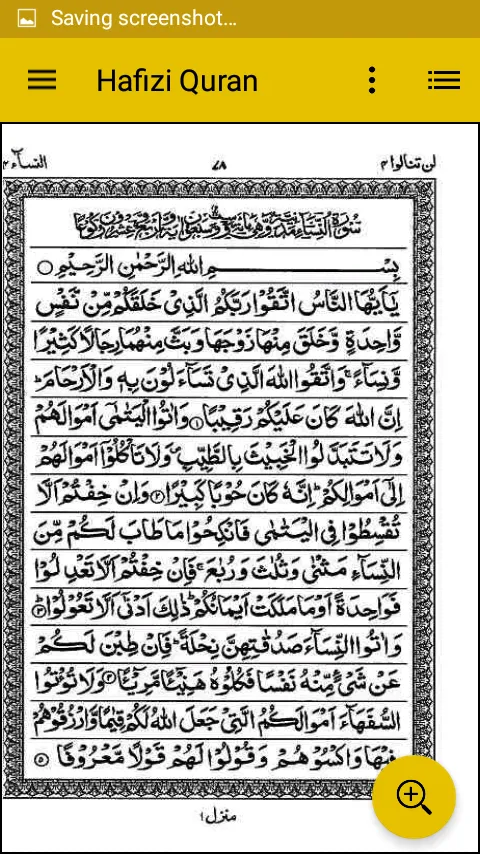 Saving screenshot...
Hafizi Quran
لن تنالوا ۴
۷۸
النسآء ۴
بِسْمِ اللهِ الرَّحْمٰنِ الرَّحِيْمِ ○
يٰۤاَيُّهَا النَّاسُ اتَّقُوْا رَبَّكُمُ الَّذِىْ خَلَقَكُمْ مِّنْ نَّفْسٍ
وَّاحِدَةٍ وَّخَلَقَ مِنْهَا زَوْجَهَا وَبَثَّ مِنْهُمَا رِجَالًا كَثِيْرًا
وَّنِسَآءً ۚ وَاتَّقُوا اللهَ الَّذِىْ تَسَآءَلُوْنَ بِهٖ وَالْاَرْحَامَ ؕ
اِنَّ اللهَ كَانَ عَلَيْكُمْ رَقِيْبًا ۱ وَاٰتُوا الْيَتٰمٰٓى اَمْوَالَهُمْ
وَلَا تَتَبَدَّلُوا الْخَبِيْثَ بِالطَّيِّبِ ۪ وَلَا تَاْكُلُوْۤا اَمْوَالَهُمْ
اِلٰٓى اَمْوَالِكُمْ ؕ اِنَّهٗ كَانَ حُوْبًا كَبِيْرًا ۲ وَاِنْ خِفْتُمْ اَلَّا
تُقْسِطُوْا فِى الْيَتٰمٰى فَانْكِحُوْا مَا طَابَ لَكُمْ مِّنَ
النِّسَآءِ مَثْنٰى وَثُلٰثَ وَرُبٰعَ ۚ فَاِنْ خِفْتُمْ اَلَّا تَعْدِلُوْا
فَوَاحِدَةً اَوْ مَا مَلَكَتْ اَيْمَانُكُمْ ؕ ذٰلِكَ اَدْنٰٓى اَلَّا تَعُوْلُوْا ؕ ۳
وَاٰتُوا النِّسَآءَ صَدُقٰتِهِنَّ نِحْلَةً ؕ فَاِنْ طِبْنَ لَكُمْ
عَنْ شَىْءٍ مِّنْهُ نَفْسًا فَكُلُوْهُ هَنِيْٓئًا مَّرِيْٓئًا ۴ وَلَا تُؤْتُوا
السُّفَهَآءَ اَمْوَالَكُمُ الَّتِىْ جَعَلَ اللهُ لَكُمْ قِيٰمًا وَّارْزُقُوْهُمْ
فِيْهَا وَاكْسُوْهُمْ وَقُوْلُوْا لَهُمْ قَوْلًا مَّعْرُوْفًا ۵
منزل ۱